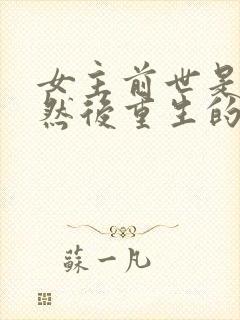 女主前世是
然後重生的
蘇一凡